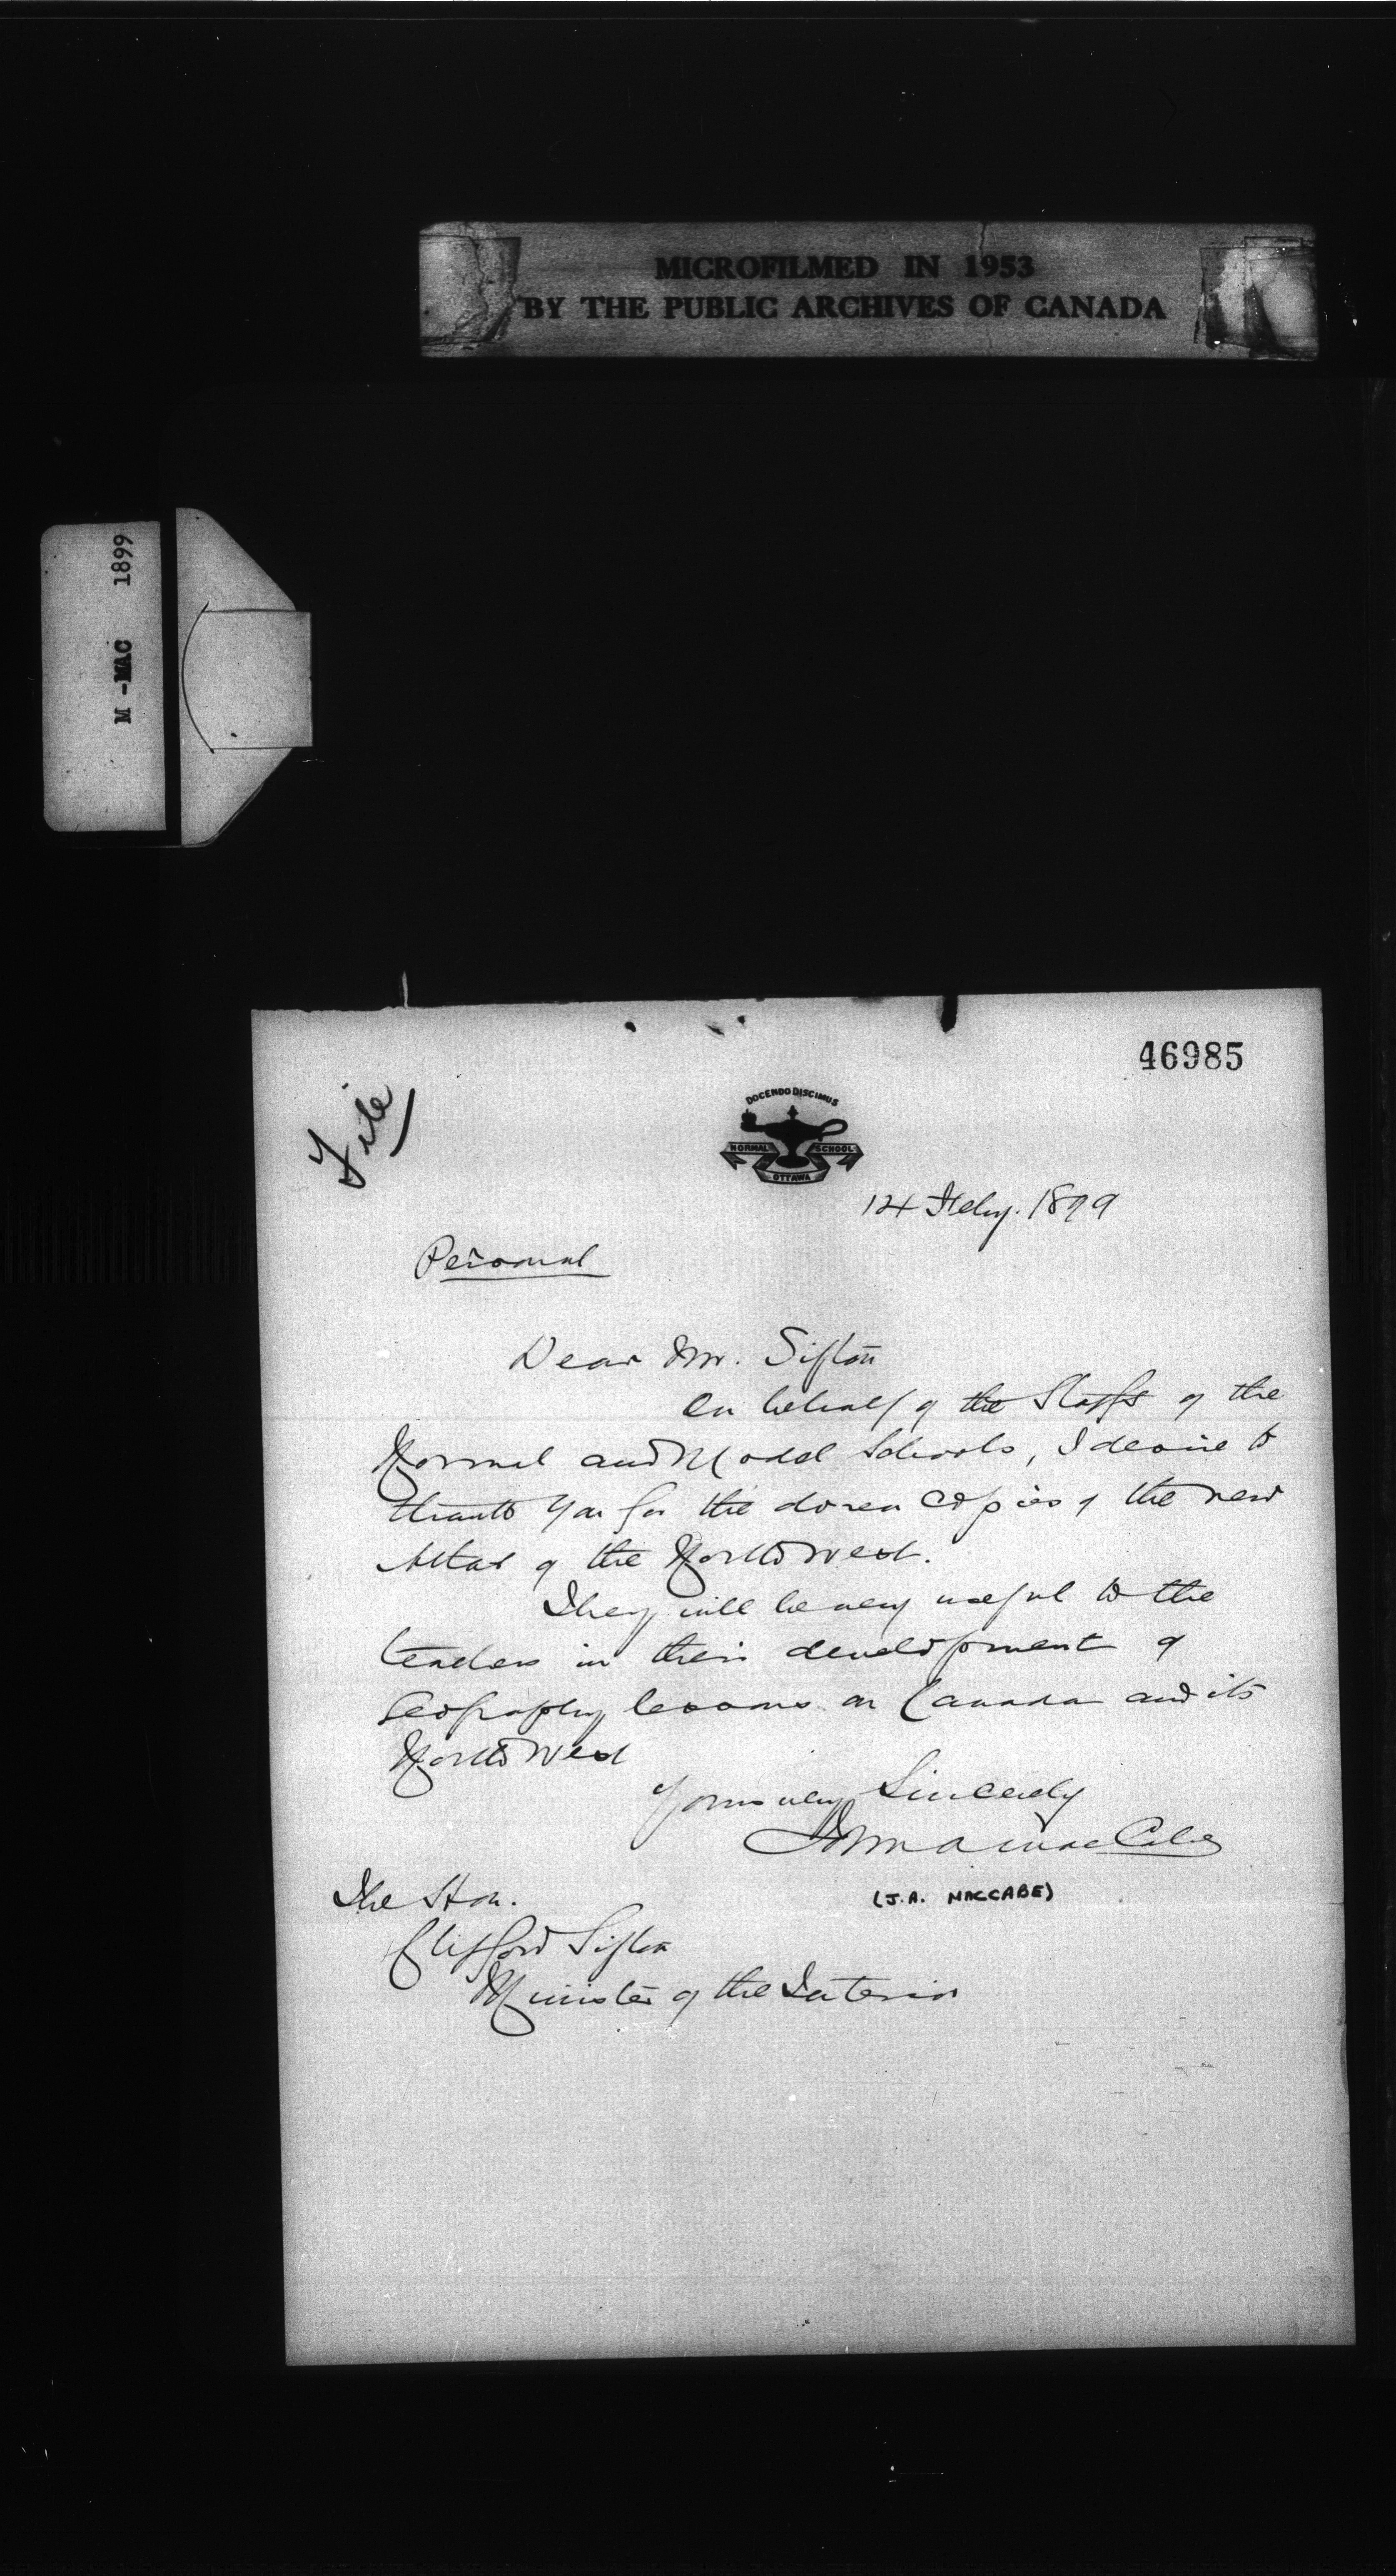 MICROFILMED IN 1953
BY THE PUBLIC ARCHIVES OF CANADA
M - MAC 1899
46985
File
DOCENDO DISCIMUS
NORMAL SCHOOL
OTTAWA
14 Feby. 1899
Personal
Dear Mr. Sifton
On behalf of the Staffs of the
Normal and Model Schools, I desire to
thank you for the dozen copies of the new
Atlas of the North West.
They will be very useful to the
teachers in their development of
Geography lessons on Canada and its
North West
Yours very Sincerely
John A MacCabe
(J.A. MACCABE)
The Hon.
Clifford Sifton
Minister of the Interior